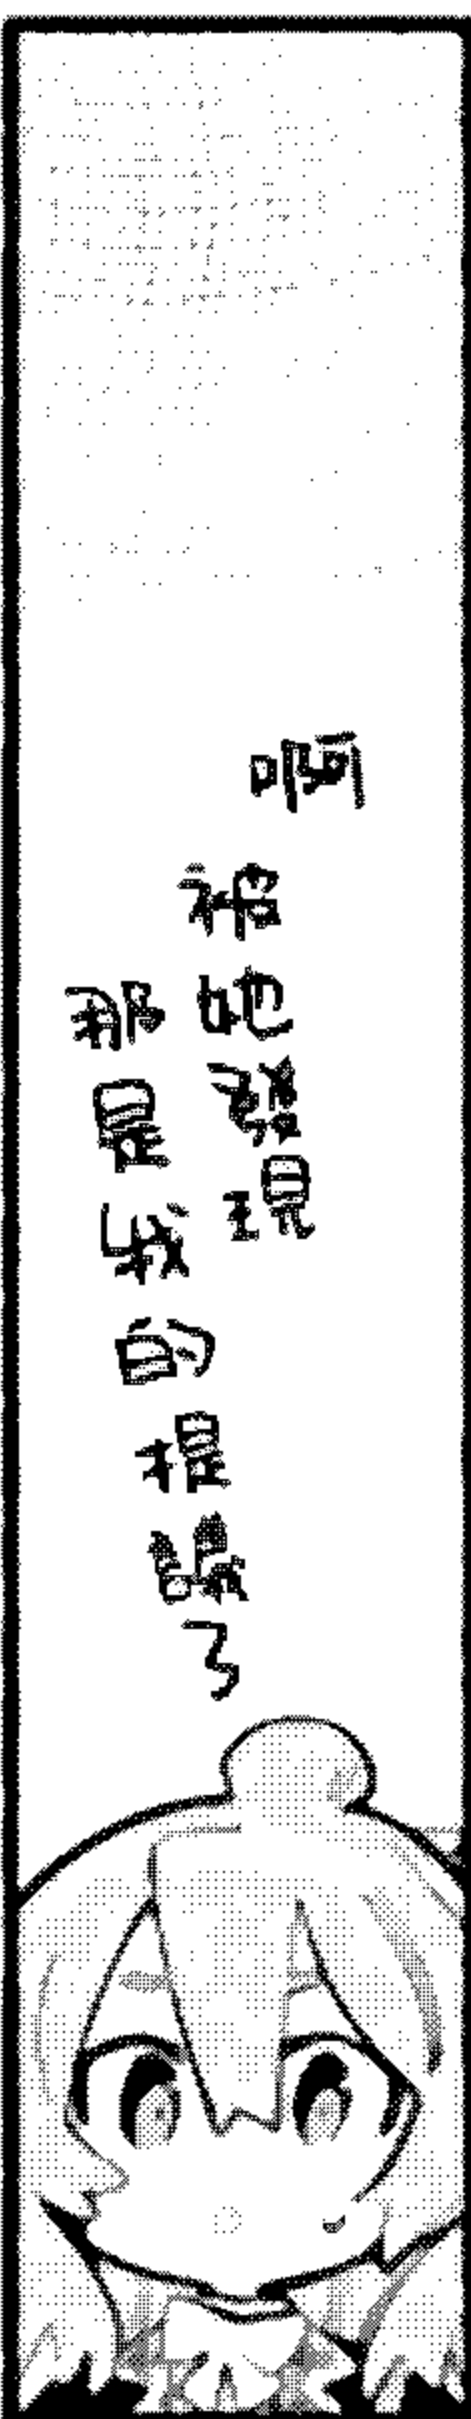 啊
被他發現
那是我的提點了